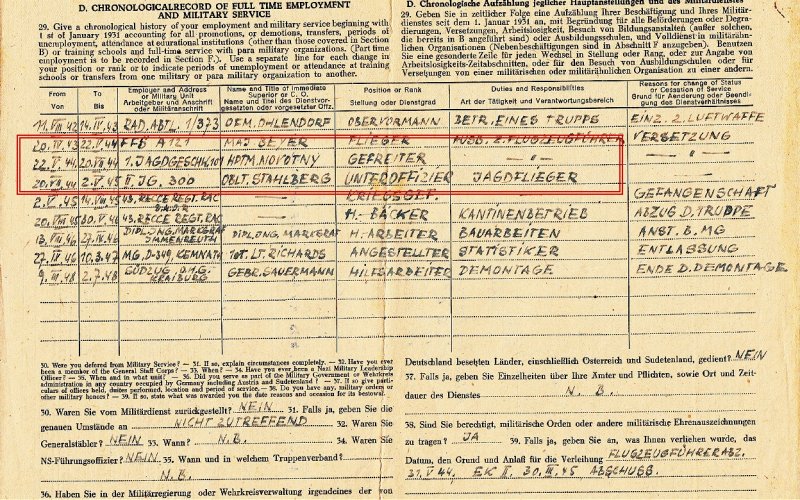 D. CHRONOLOGICALRECORD OF FULL TIME EMPLOYMENT
AND MILITARY SERVICE
29. Give a chronological history of your employment and military service beginning with
1 st of January 1931 accounting for all promotions, or demotions, transfers, periods of
unemployment, attendance at educational institutions (other than those covered in Section
B) or training schools and full-time service with para military organizations. (Part time
employment is to be recorded in Section F.) Use a separate line for each change in
your position or rank or to indicate periods of unemployment or attendance at training
schools or transfers from one military or para military organization to another.
D. Chronologische Aufzählung jeglicher Hauptanstellungen und des Militärdienstes
29. Geben Sie in zeitlicher Folge eine Aufzählung Ihrer Beschäftigung und Ihres Militär-
dienstes seit dem 1. Januar 1931 an, mit Begründung für alle Beförderungen oder Degra-
dierungen, Versetzungen, Arbeitslosigkeit, Besuch von Bildungsanstalten (außer solchen,
die bereits in B angeführt sind) oder Ausbildungsschulen, und Volldienst in militärähn-
lichen Organisationen (Nebenbeschäftigungen sind in Abschnitt F anzugeben). Benutzen
Sie eine gesonderte Zeile für jeden Wechsel in Stellung oder Rang, oder zur Angabe von
Arbeitslosigkeits-Zeitabschnitten, oder für den Besuch von Ausbildungsschulen oder für
Versetzungen von einer militärischen oder militärähnlichen Organisation zu einer anderen.
From Von
To Bis
Employer and Address or Military Unit Arbeitgeber und Anschrift oder Militäranschrift
Name and Title of Immediate Superior or C. O. Name und Titel des Dienstvor-gesetzten oder vorgesetzter Offz.
Position or Rank Stellung oder Dienstgrad
Duties and Responsibilities Art der Tätigkeit und Verantwortungsbereich
Reasons for Change of Status or Cessation of Service Grund für Änderung oder Beendigung des Dienstverhältnisses
11. VIII 42 14. IV 43 RAD. ABTL. 1/323 OFM. OHLENDORF OBERVORMANN BETR. EINES TRUPPS EINZ. Z. LUFTWAFFE
20. IV 43 22. V 44 FFB A 121 MAJ BEYER FLIEGER AUSB. Z. FLUGZEUGFÜHRER VERSETZUNG
22. V. 44 20. VII 44 1. JAGDGESCHW. 101 HPTM. NOVOTNY GEFREITER — " — — " —
20. VII 44 2. V 45 II. JG. 300 OBLT. STAHLBERG UNTEROFFIZIER JAGDFLIEGER
2. V. 45 RECCE REGT. RAC KRIEGSGEF. GEFANGENSCHAFT
43. RECCE REGT. RAC H.-BÄCKER KANTINENBETRIEB ABZUG D. TRUPPE
DIPL. JNG. MARKGRAF JMMENREUTH DIPL. JNG. MARKGRAF H. ARBEITER BAUARBEITEN ANST. B. MG
27. IV 46 10. 3. 47 MG. D-349, KEMNATH 1st. LT. RICHARDS ANGESTELLTER STATISTIKER ENTLASSUNG
9. III. 48 2. 7. 48 KRAIBURG GEBR. SAUERMANN HILFSARBEITER DEMONTAGE ENDE D. DEMONTAGE
30. Were you deferred from Military Service? — 31. If so, explain circumstances completely. — 32. Have you ever
been a member of the General Staff Corps? — 33. When? — 34. Have you ever been a Nazi Military Leadership
Officer? — 35. When and in what unit? — 36. Did you serve as part of the Military Government or Wehrkreis
administration in any country occupied by Germany including Austria and Sudetenland? — 37. If so give parti-
culars of offices held, duties performed, location and period of service. — 38. Do you have any, military orders or
other military honors? — 39. If so, state what was awarded you the date reasons and occasion for its bestowal.
30. Waren Sie vom Militärdienst zurückgestellt? NEIN 31. Falls ja, geben Sie die
genauen Umstände an NICHT ZUTREFFEND 32. Waren Sie
Generalstäbler? NEIN 33. Wann? N. B. 34. Waren Sie
NS-Führungsoffizier? NEIN 35. Wann und in welchem Truppenverband?
N. B.
36. Haben Sie in der Militärregierung oder Wehrkreisverwaltung irgendeines der von
Deutschland besetzten Länder, einschließlich Österreich und Sudetenland, gedient? NEIN
37. Falls ja, geben Sie Einzelheiten über Ihre Ämter und Pflichten, sowie Ort und Zeit-
dauer des Dienstes N. B.
38. Sind Sie berechtigt, militärische Orden oder andere militärische Ehrenauszeichnungen
zu tragen? JA 39. Falls ja, geben Sie an, was Ihnen verliehen wurde, das
Datum, den Grund und Anlaß für die Verleihung FLUGZEUGFÜHRERABZ.
31. V 44, EK II. 30. III. 45 ABSCHUSS.